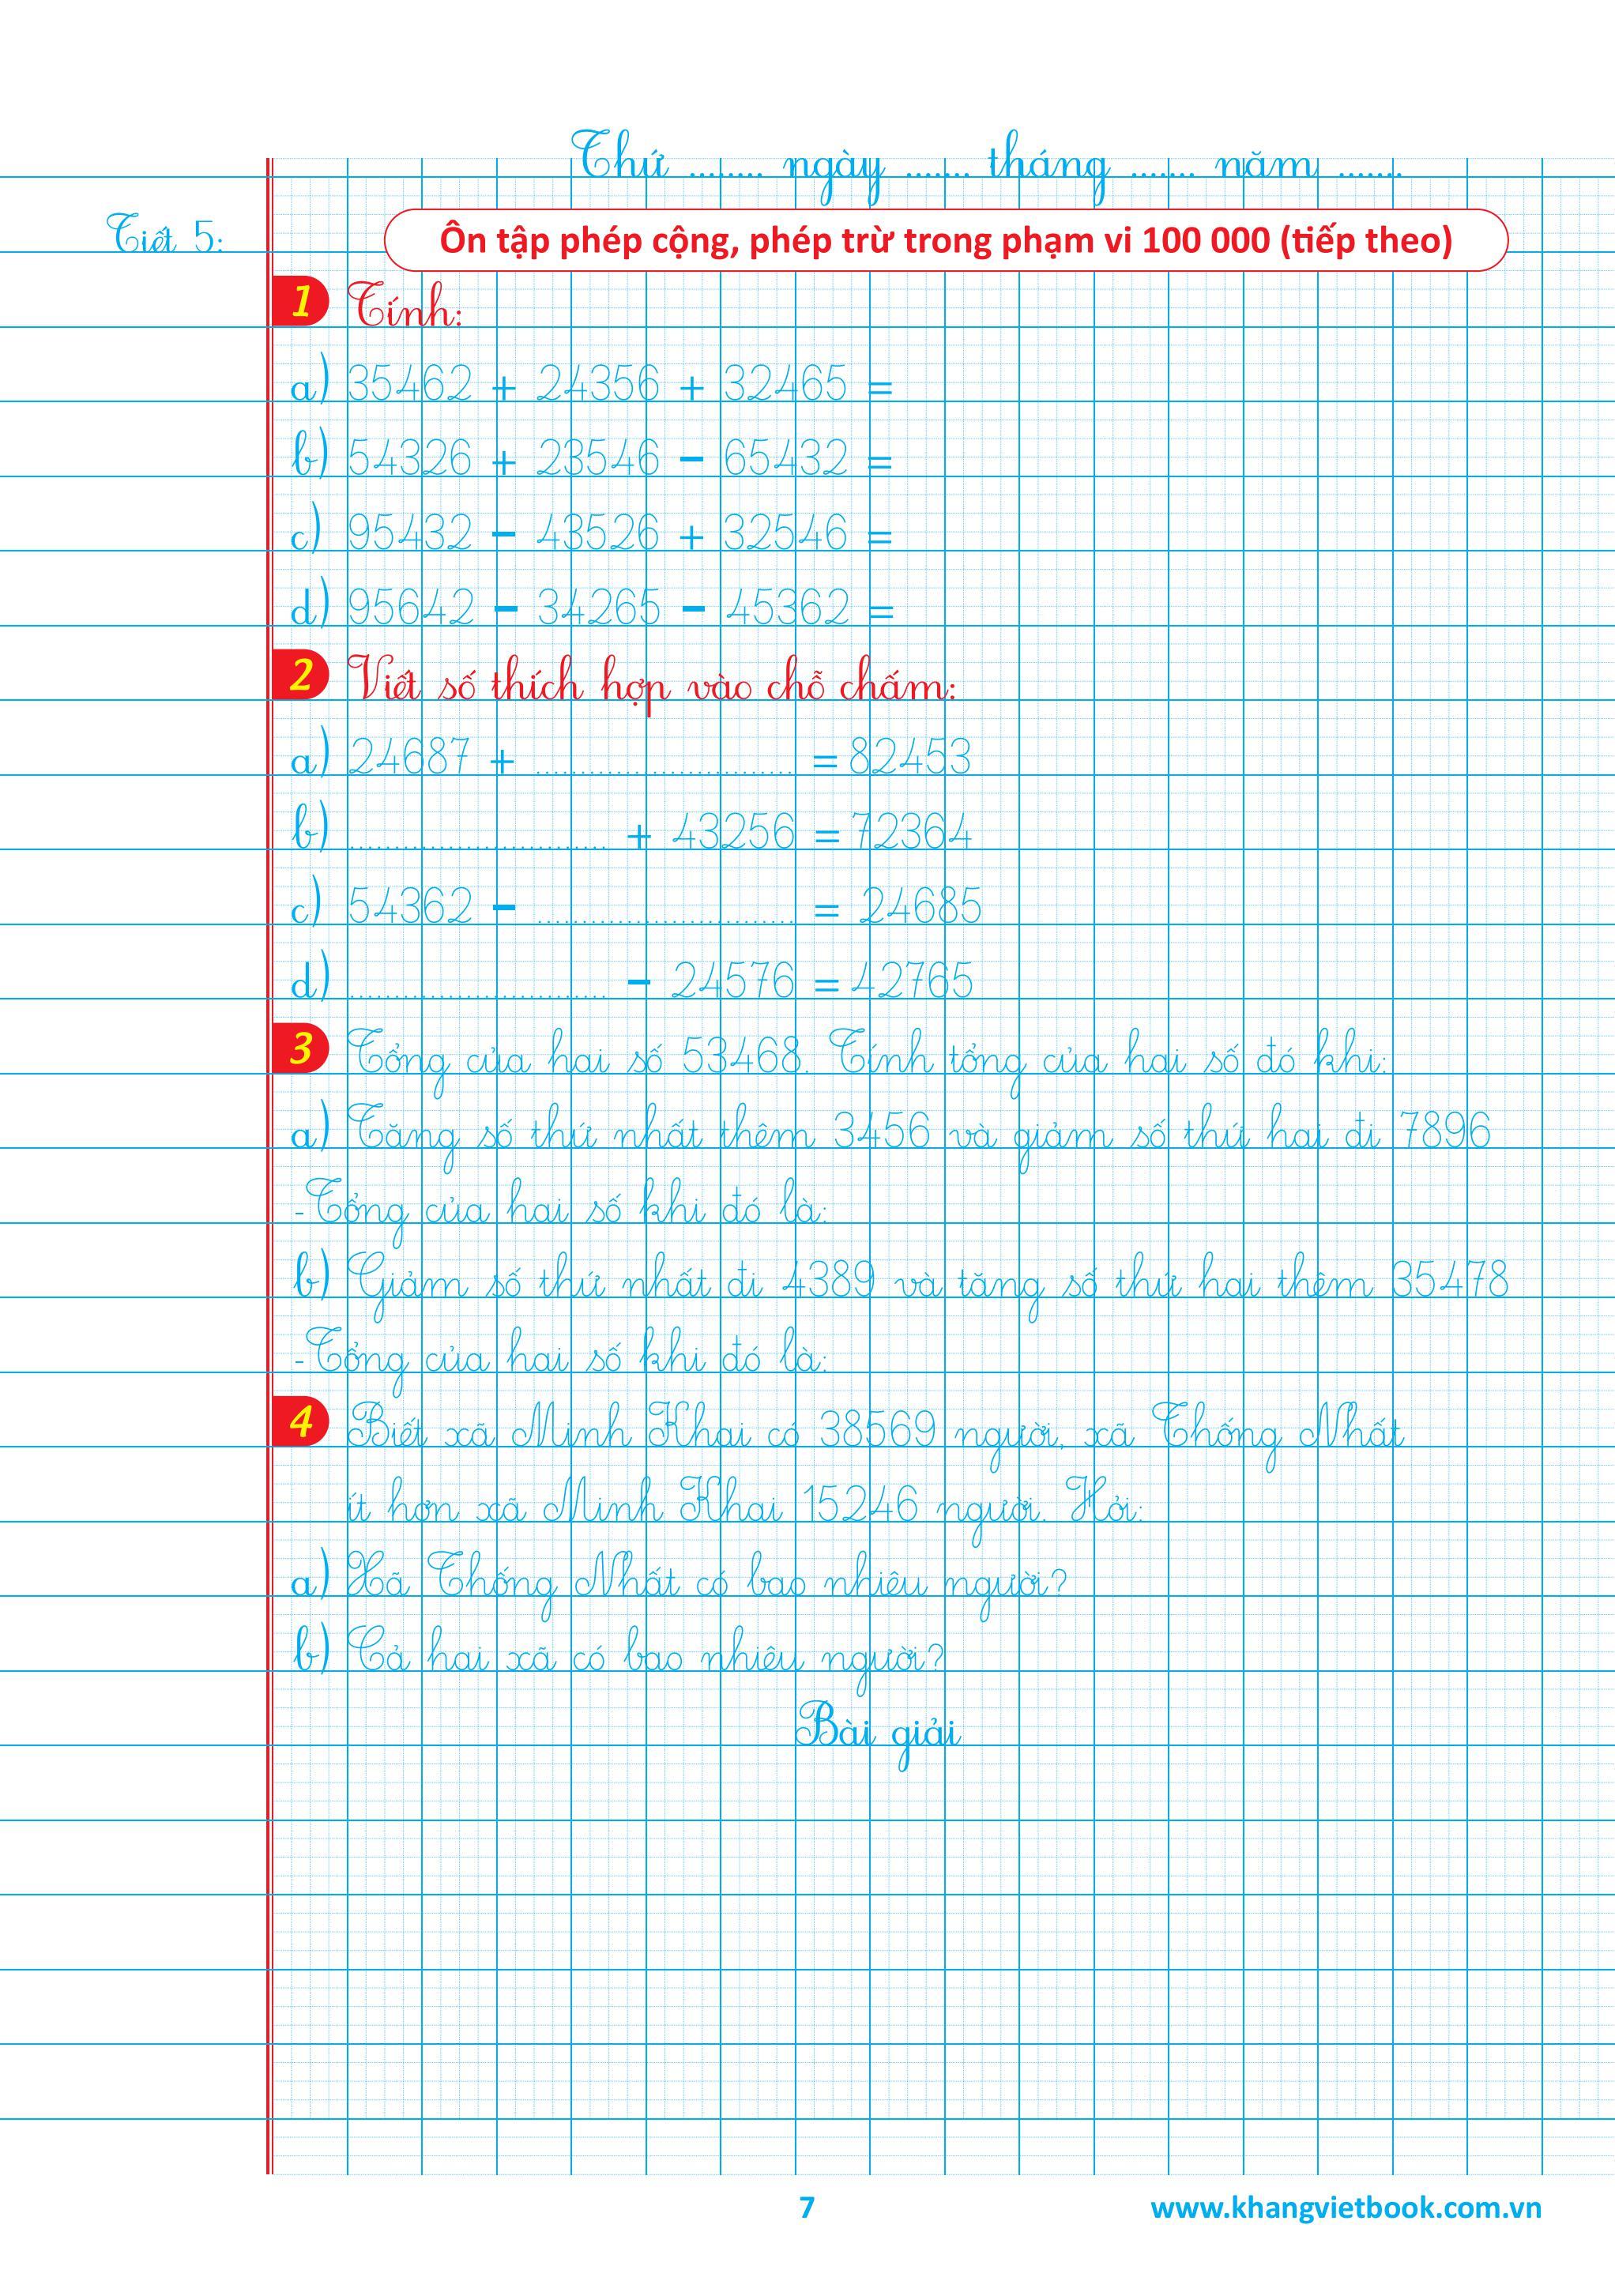 Thứ ........ ngày ....... tháng ....... năm .......
Tiết 5:
Ôn tập phép cộng, phép trừ trong phạm vi 100 000 (tiếp theo)
1 Tính:
a) 35462 + 24356 + 32465 =
b) 54326 + 23546 - 65432 =
c) 95432 - 43526 + 32546 =
d) 95642 - 34265 - 45362 =
2 Viết số thích hợp vào chỗ chấm:
a) 24687 + ............................ = 82453
b) ............................ + 43256 = 72364
c) 54362 - ............................ = 24685
d) ............................ - 24576 = 42765
3 Tổng của hai số 53468. Tính tổng của hai số đó khi:
a) Tăng số thứ nhất thêm 3456 và giảm số thứ hai đi 7896
-Tổng của hai số khi đó là:
b) Giảm số thứ nhất đi 4389 và tăng số thứ hai thêm 35478
-Tổng của hai số khi đó là:
4 Biết xã Minh Khai có 38569 người, xã Thống Nhất
ít hơn xã Minh Khai 15246 người. Hỏi:
a) Xã Thống Nhất có bao nhiêu người?
b) Cả hai xã có bao nhiêu người?
Bài giải
7
www.khangvietbook.com.vn